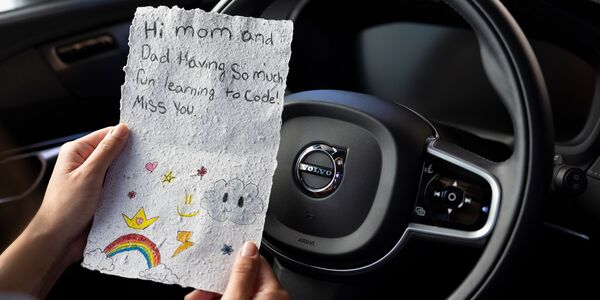 Hi mom and
Dad Having So much
fun learning to Code!
Miss You.
VOLVO
AIRBAG